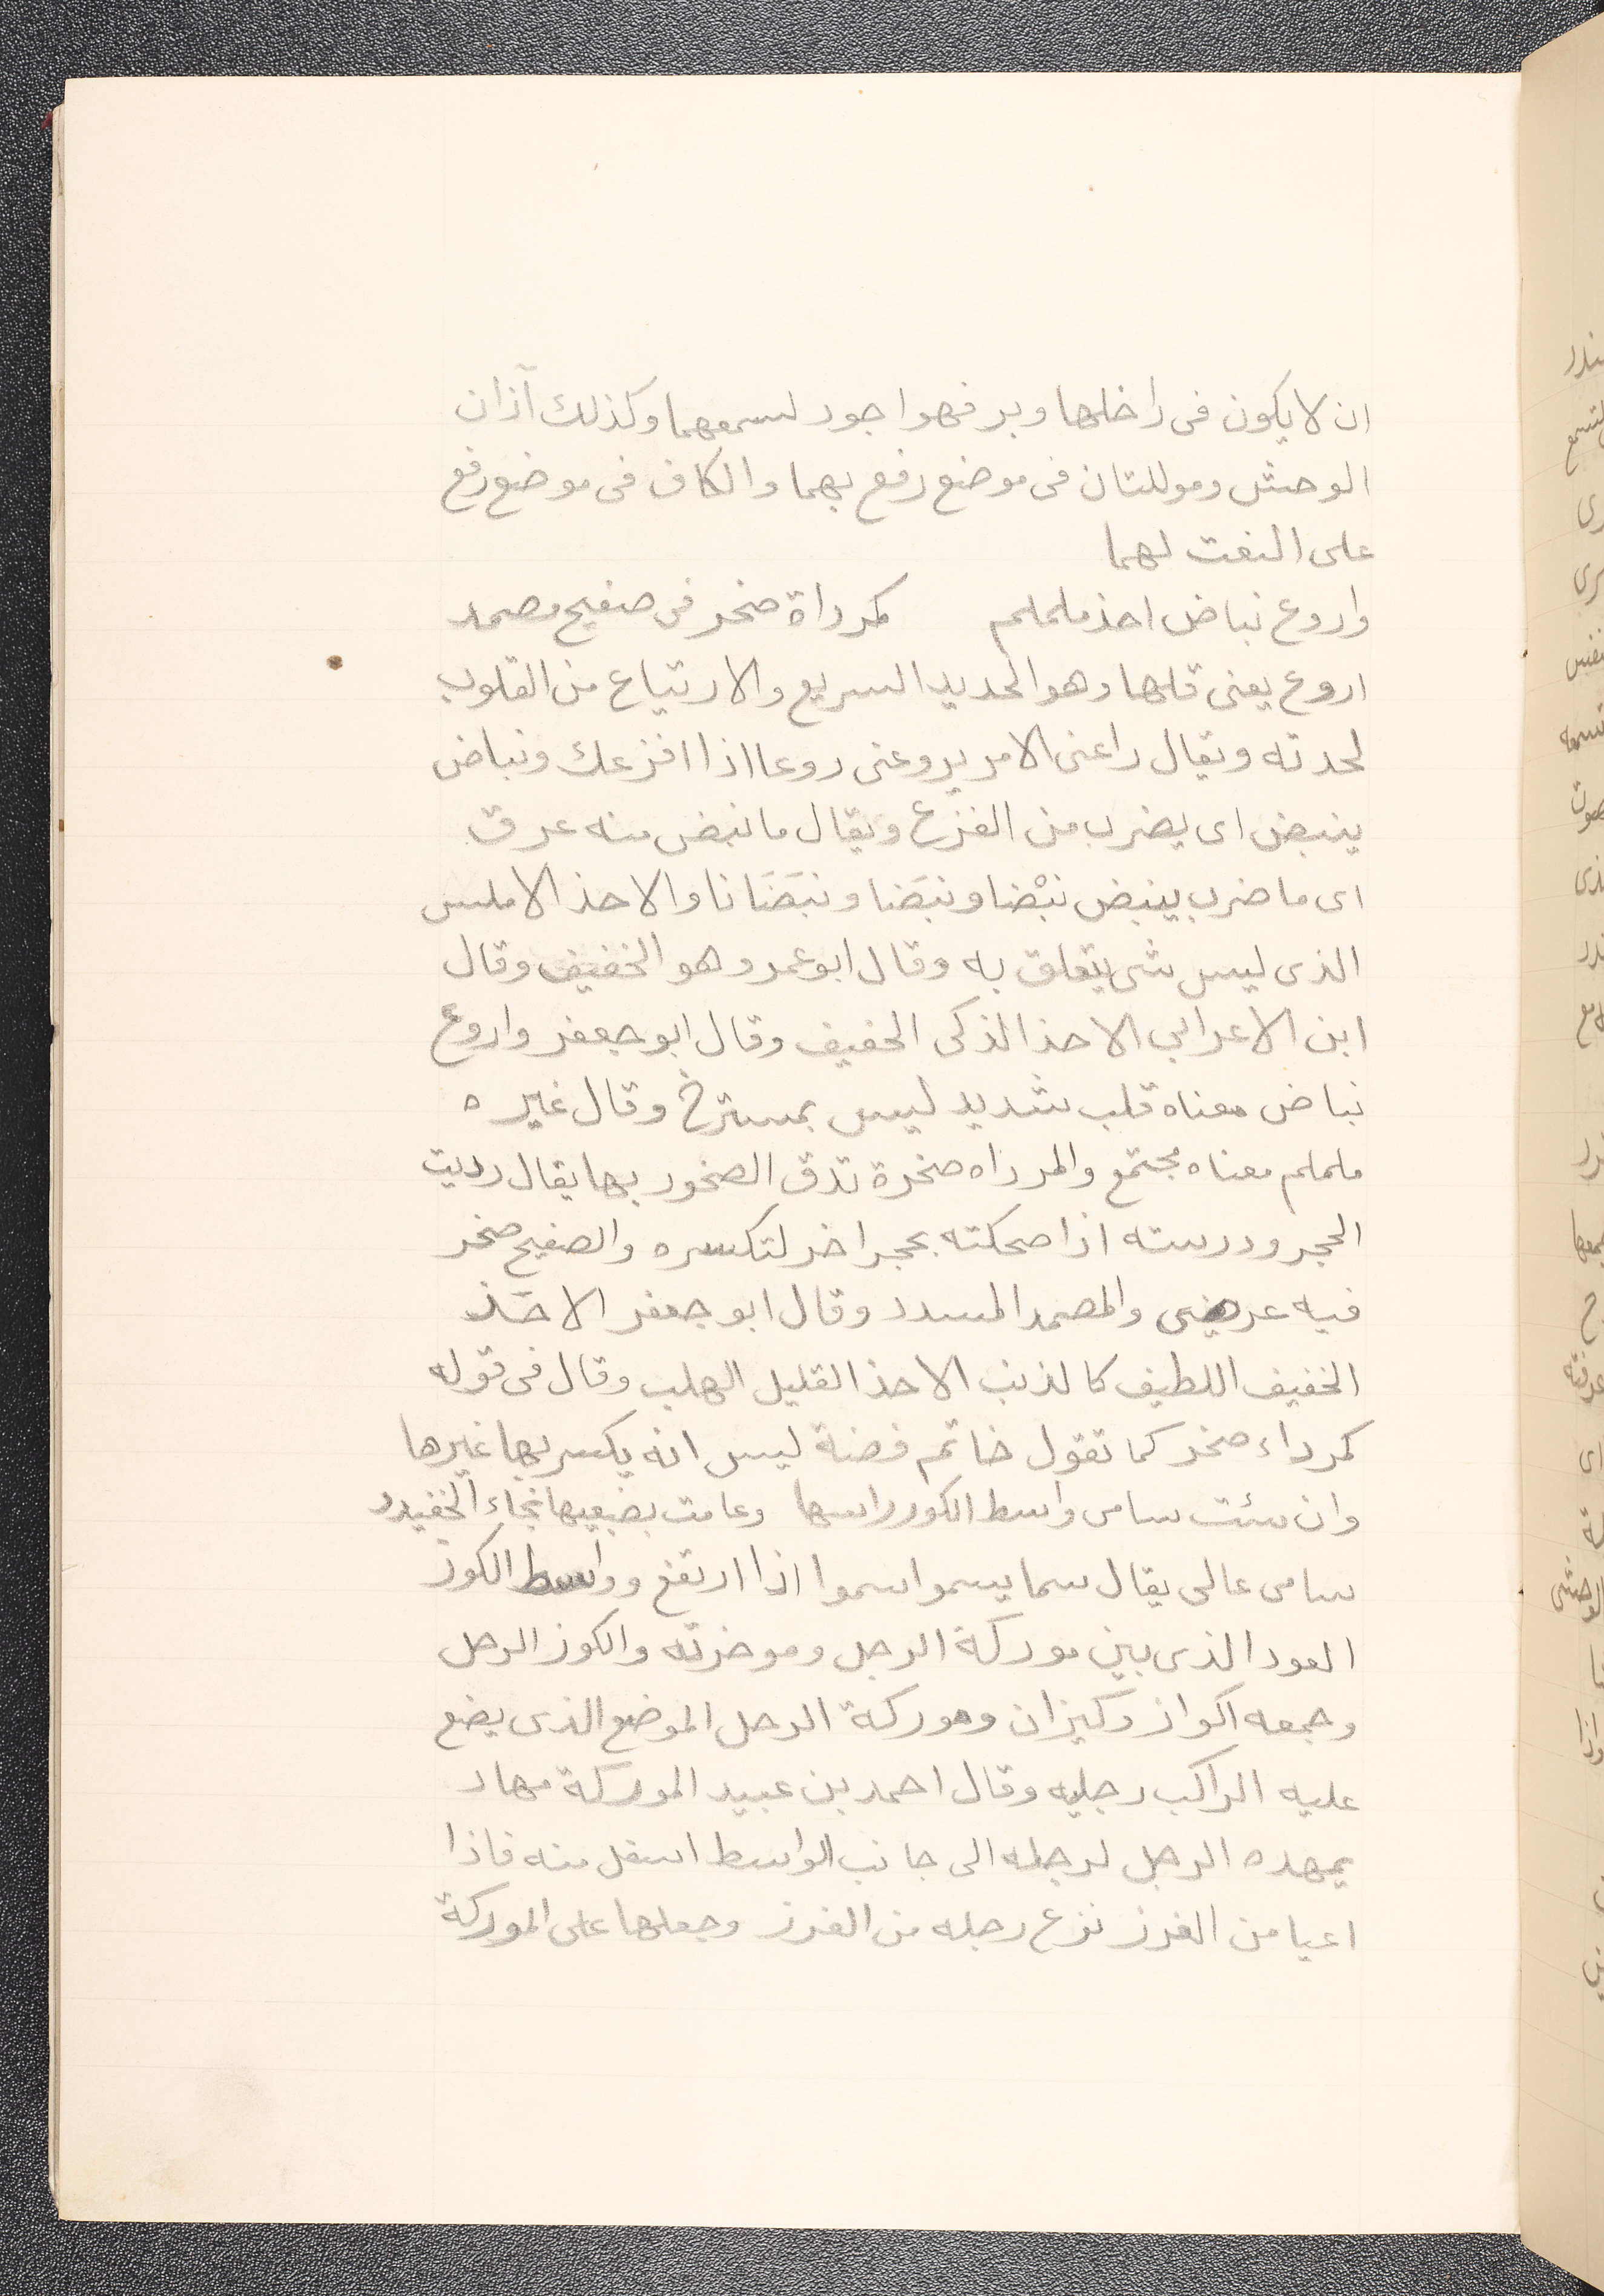 ان لا يكون فى داخلها وبر فهو اجود لسمعهما وكذلك آذان
الوحش ومولىتان فى موضع رفع بهما والكاف فى موضع رفع
على النعت لهما
واروع نباض احذ ململم كمرداة صخر فى صفيح مصمد
اروع يعنى قلبها وهو الحديد السريع والارتياع من القلوب
لحدته ويقال راعنى الامر يروعنى روعا اذا افزعك ونباض
ينبض اى يضرب من الفزع ويقال ما نبض منه عرق
اى ما ضرب ينبض نبْضا ونبَضا ونبَضَانا والاحذ الاملس
الذى ليس شى يتعلق به وقال ابو عمرو هو الخفيف وقال
ابن الاعرابي الاحذ الذكى الخفيف وقال ابو جعفر واروع
نباض معناه قلب شديد ليس بمسترخ وقال غيره
ململم معناه مجتمع والمرداه صخرة تدق الصخور بها يقال رديت
الحجر ودرسته اذا صحكته بحجر اخر لتكسره والصفيح صخر
فيه عرض والمصمد المسدد وقال ابو جعفر الاحَذ
الخفيف اللطيف كالذنب الاحذ القليل الهلب وقال فى قوله
كمرداء صخر كما تقول خاتم فضة ليس انه يكسر بها غيرها
وان سئت سامى واسط الكور راسها وعامت بضبعيها نجاء الخفيدد
سامى عالى يقال سما يسموا سموا اذا ارتفع وواسط الكوز
العود الذى بين موركة الرجل وموخرته والكوز الرحل
وجمعه اكواز وكيزان وموركة الرحل الموضع الذى يضع
عليه الراكب رجليه وقال احمد بن عبيد الموركة مهاد
يمهده الرجل لرجله الى جانب الواسط اسفل منه فاذا
اعيا من الغرز نزع رجله من الغرز وجعلها على الموركة